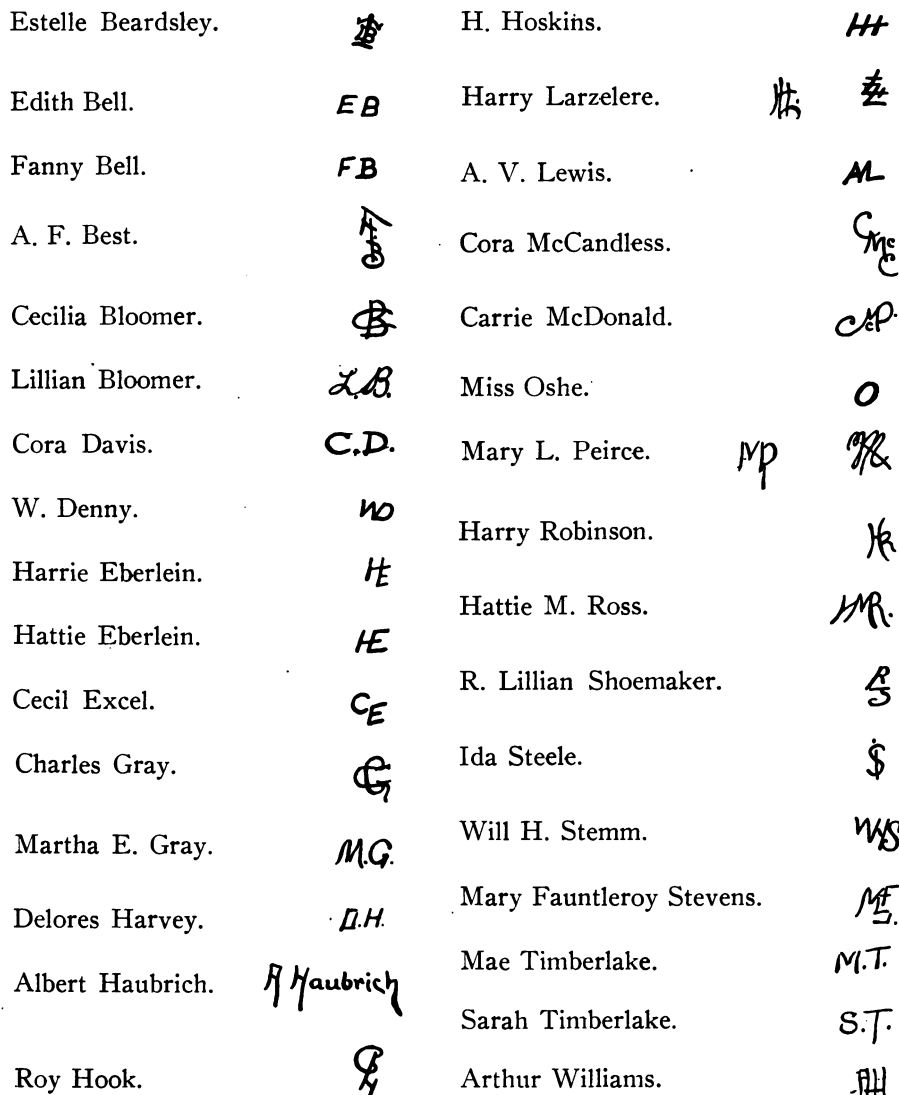 Estelle Beardsley.
Edith Bell. EB
Fanny Bell. FB
A. F. Best.
Cecilia Bloomer. CB
Lillian Bloomer. L.B.
Cora Davis. C.D.
W. Denny. WD
Harrie Eberlein. HE
Hattie Eberlein. HE
Cecil Excel. CE
Charles Gray. CG
Martha E. Gray. M.G.
Delores Harvey. D.H.
Albert Haubrich. A Haubrich
Roy Hook.
H. Hoskins. HH
Harry Larzelere.
A. V. Lewis. AL
Cora McCandless. CMcC
Carrie McDonald. CMcD.
Miss Oshe. O
Mary L. Peirce. MP
Harry Robinson. HR
Hattie M. Ross. HMR.
R. Lillian Shoemaker. RS
Ida Steele. IS
Will H. Stemm. WHS
Mary Fauntleroy Stevens. MFS.
Mae Timberlake. M.T.
Sarah Timberlake. S.T.
Arthur Williams.